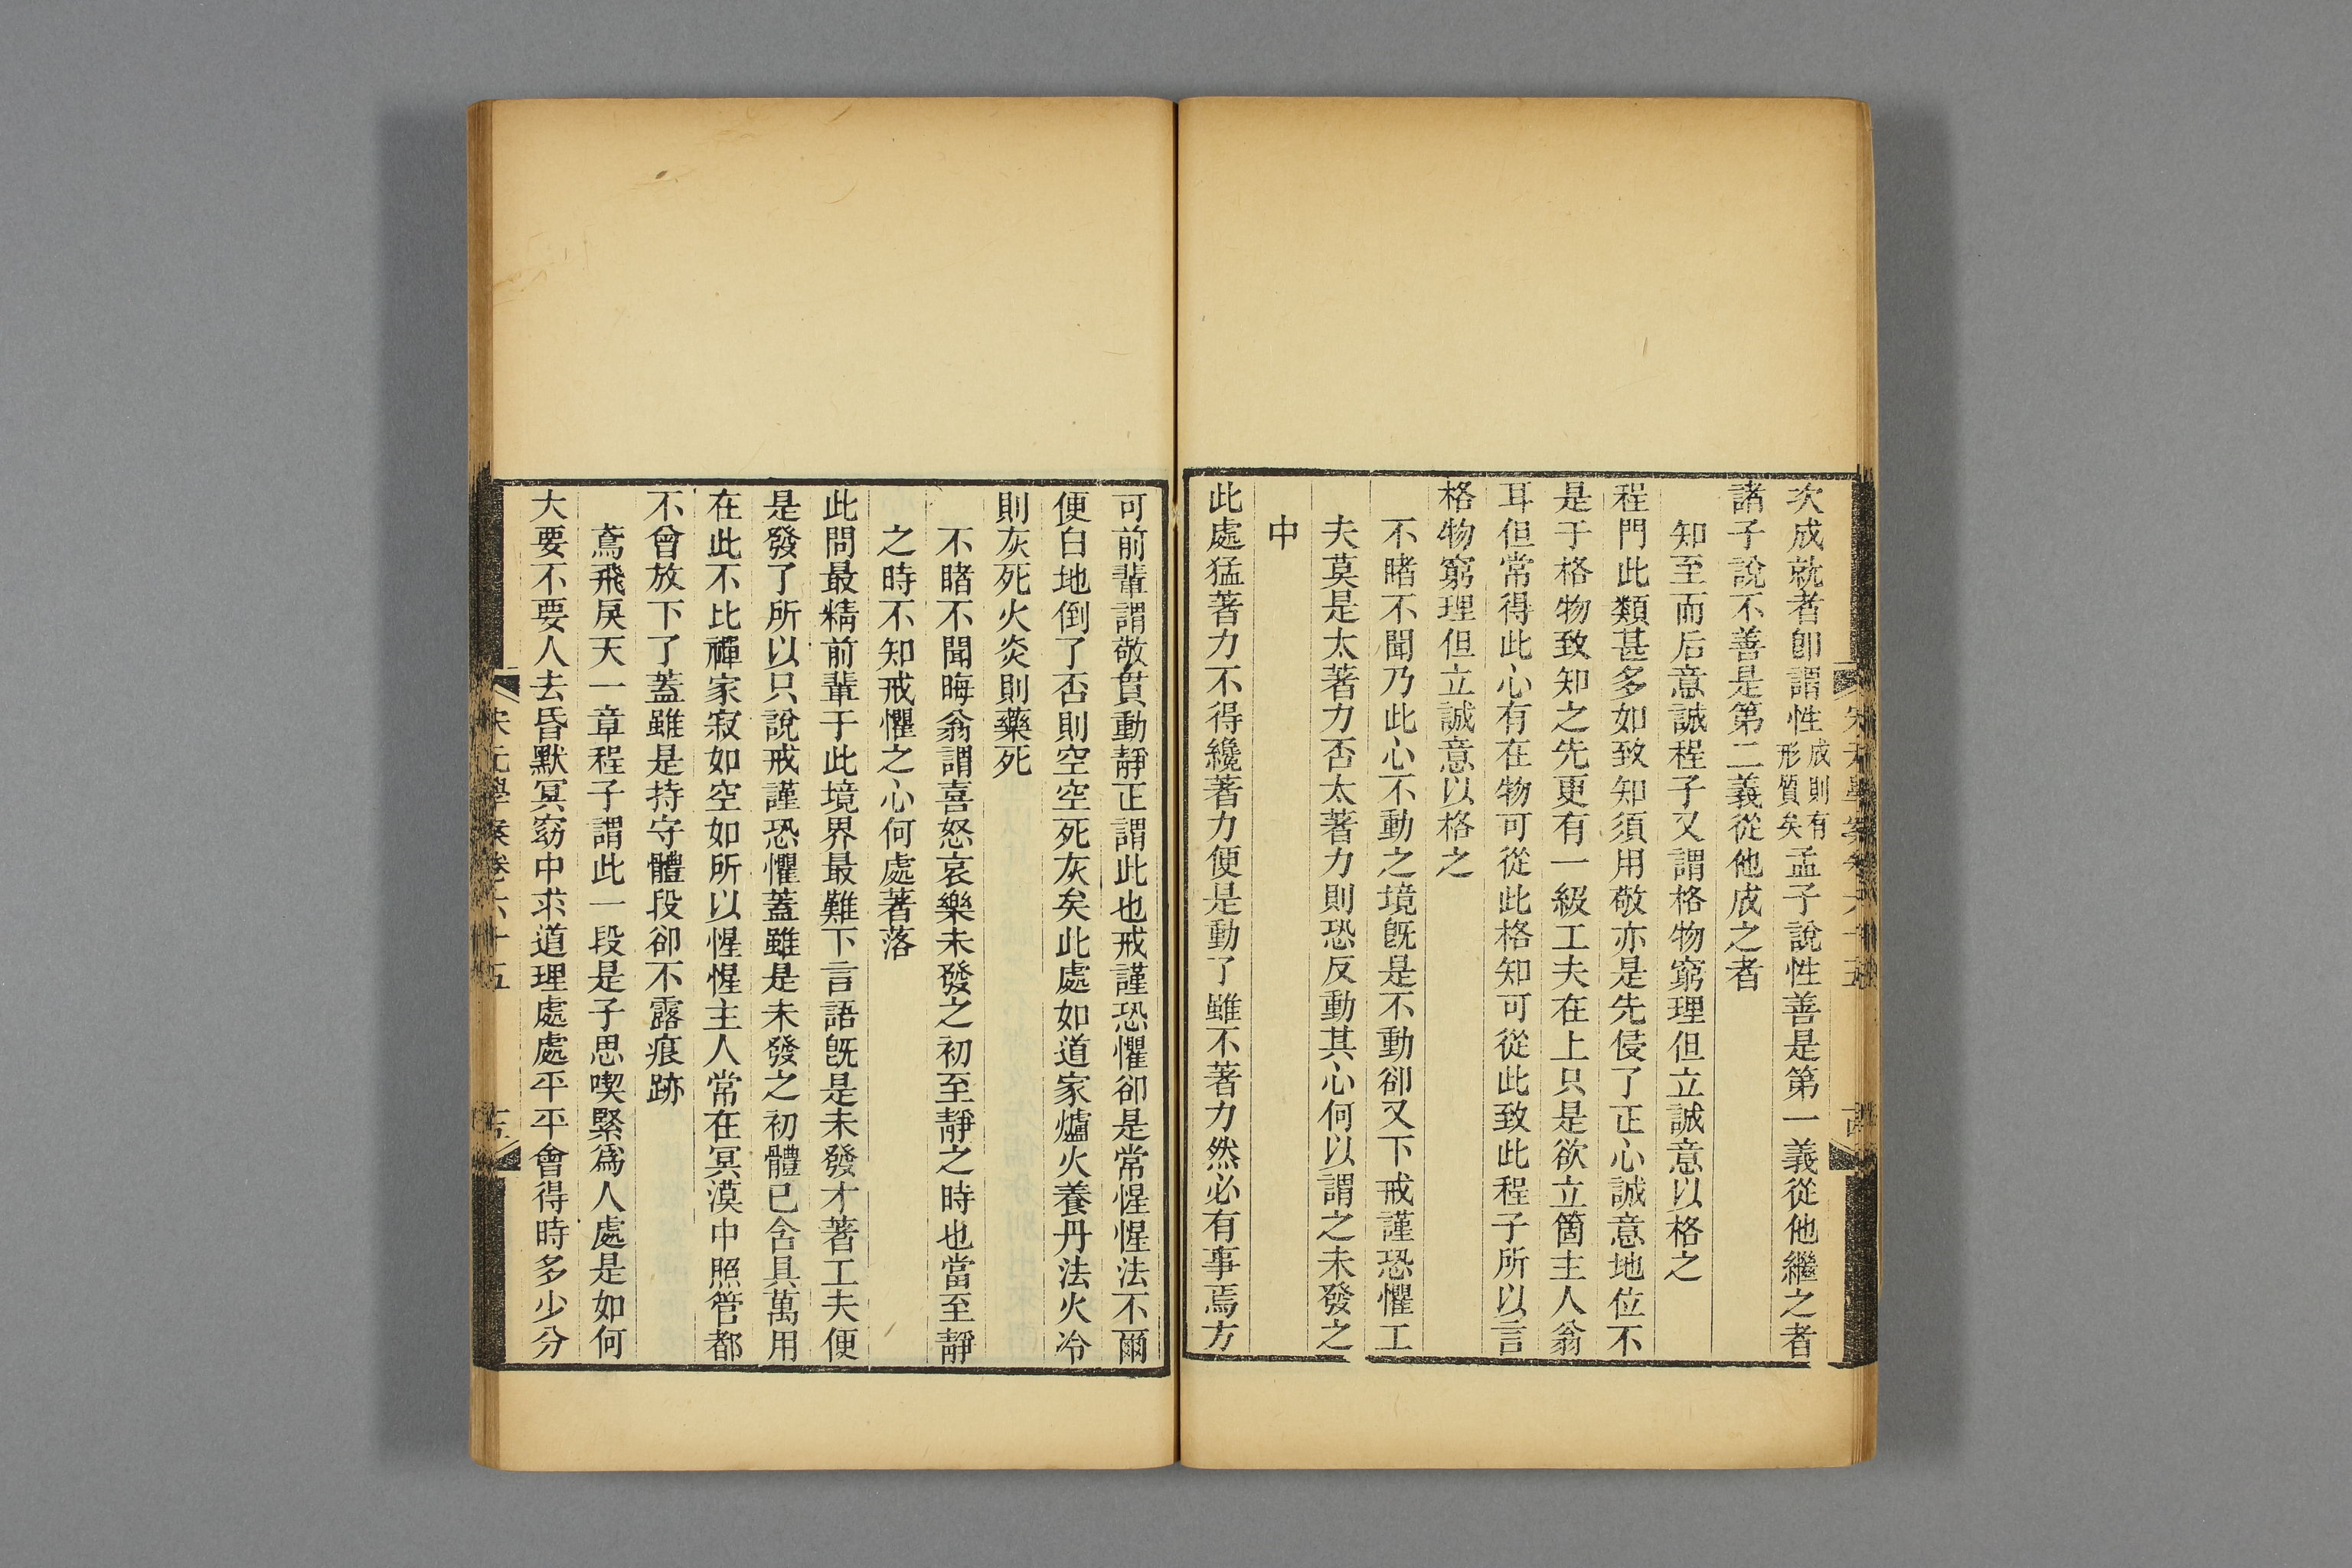 次成就者卽謂性成則有形質矣孟子說性善是第一義從他繼之者
諸子說不善是第二義從他成之者
知至而后意誠程子又謂格物窮理但立誠意以格之
程門此類甚多如致知須用敬亦是先侵了正心誠意地位不
是于格物致知之先更有一級工夫在上只是欲立箇主人翁
耳但常得此心有在物可從此格知可從此致此程子所以言
格物窮理但立誠意以格之
不睹不聞乃此心不動之境旣是不動卻又下戒謹恐懼工
夫莫是太著力否太著力則恐反動其心何以謂之未發之
中
此處猛著力不得纔著力便是動了雖不著力然必有事焉方
可前輩謂敬貫動靜正謂此也戒謹恐懼卻是常惺惺法不爾
便白地倒了否則空空死灰矣此處如道家爐火養丹法火冷
則灰死火炎則藥死
不睹不聞晦翁謂喜怒哀樂未發之初至靜之時也當至靜
之時不知戒懼之心何處著落
此問最精前輩于此境界最難下言語旣是未發才著工夫便
是發了所以只說戒謹恐懼蓋雖是未發之初體已含具萬用
在此不比禪家寂如空如所以惺惺主人常在冥漠中照管都
不曾放下了蓋雖是持守體段卻不露痕跡
鳶飛戾天一章程子謂此一段是子思喫緊爲人處是如何
大要不要人去昏默冥窈中求道理處處平平會得時多少分
宋元學案卷六十五